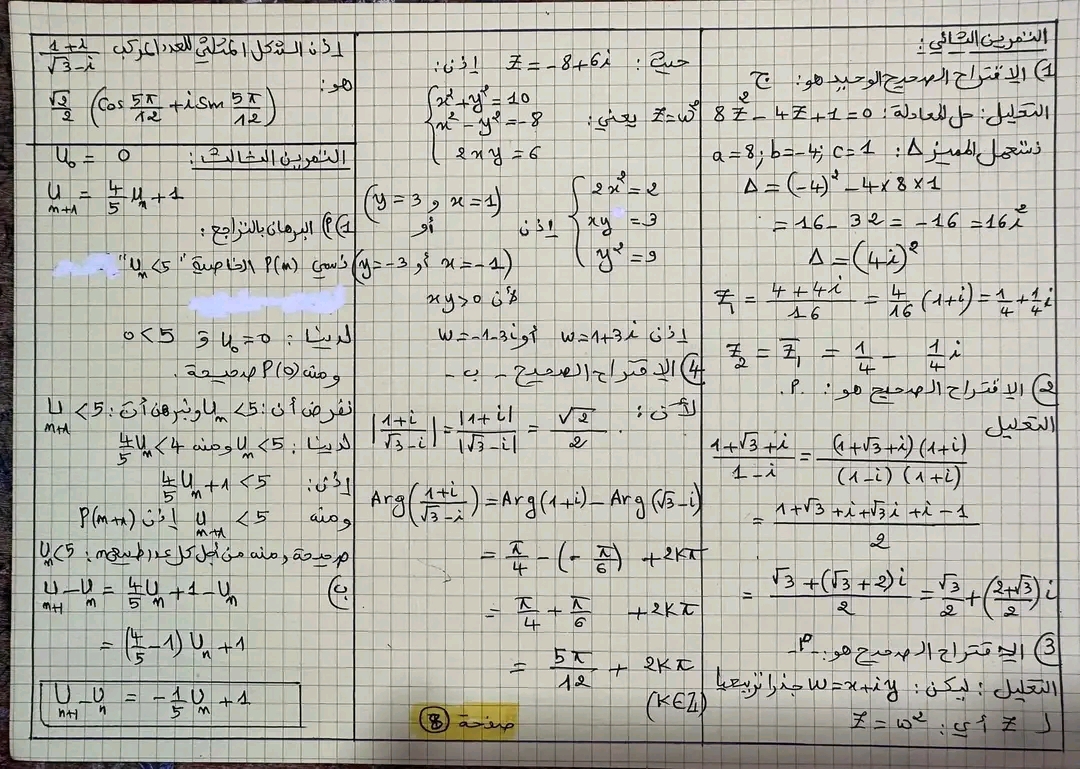 التمرين الثاني:
1) الاقتراح الصحيح الوحيد هو: ج
التعليل: حل المعادلة: 8Z² - 4Z + 1 = 0
نستعمل المميز Δ: a=8; b=-4; c=1
Δ = (-4)² - 4×8×1
= 16 - 32 = -16 = 16i²
Δ = (4i)²
Z₁ = (4+4i)/16 = 4/16 (1+i) = 1/4 + 1/4 i
Z₂ = Z̄₁ = 1/4 - 1/4 i
2) الاقتراح الصحيح هو: أ.
التعليل
(1+√3+i)/(1-i) = ((1+√3+i)(1+i))/((1-i)(1+i))
= (1+√3+i+√3i+i-1)/2
= (√3+(√3+2)i)/2 = √3/2 + ((2+√3)/2) i
3) الاقتراح الصحيح هو: -أ-
التعليل: ليكن: W=x+iy جذرا تربيعيا
لـ Z أي: Z = ω²
حيث: Z = -8+6i إذن:
Z=ω² يعني: { x²+y² = 10
x²-y² = -8
2xy = 6
إذن { 2x² = 2
xy = 3
y² = 9
(x=1 و y=3)
أو
(x=-1 و y=-3)
لأن xy>0
إذن W=1+3i أو W=-1-3i
4) الاقتراح الصحيح - ب -
لأن: |(1+i)/(√3-i)| = |1+i|/|√3-i| = √2/2.
Arg((1+i)/(√3-i)) = Arg(1+i) - Arg(√3-i)
= π/4 - (-π/6) + 2Kπ
= π/4 + π/6 + 2Kπ
= 5π/12 + 2Kπ
(K∈ℤ)
صفحة 8
إذن الشكل المثلثي للعدد المركب (1+i)/(√3-i)
هو:
√2/2 (Cos 5π/12 + i Sin 5π/12)
التمرين الثالث: U₀ = 0
Uₙ₊₁ = 4/5 Uₙ + 1
1) أ) البرهان بالتراجع:
نسمي P(n) الخاصية "Uₙ<5"
لدينا: U₀=0 و 0<5
ومنه P(0) صحيحة.
نفرض أن: Uₙ<5 ونبرهن أن: Uₙ₊₁<5
لدينا: Uₙ<5 ومنه 4/5 Uₙ<4
إذن: 4/5 Uₙ+1 <5
ومنه Uₙ₊₁ <5 إذن P(n+1)
صحيحة، ومنه من أجل كل عدد طبيعي n: Uₙ<5
ب) Uₙ₊₁-Uₙ = 4/5 Uₙ+1-Uₙ
= (4/5-1)Uₙ+1
Uₙ₊₁-Uₙ = -1/5 Uₙ+1